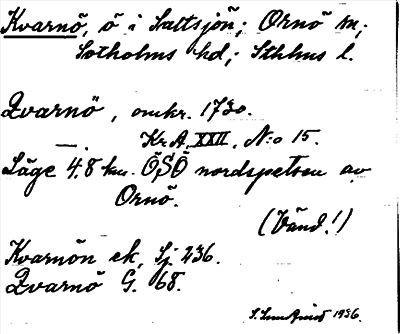 Kvarnö, ö i Saltsjön; Ornö sn;
Sotholms hd; Sthlms l.
Qvarnö, omkr. 1730.
—„— Kr.A. XXII, N:o 15.
Läge 4.8 km. ÖSÖ nordspetsen av
Ornö.
(Vänd!)
Kvarnön ek. Sj. 236.
Qvarnö G. 68.
1936.